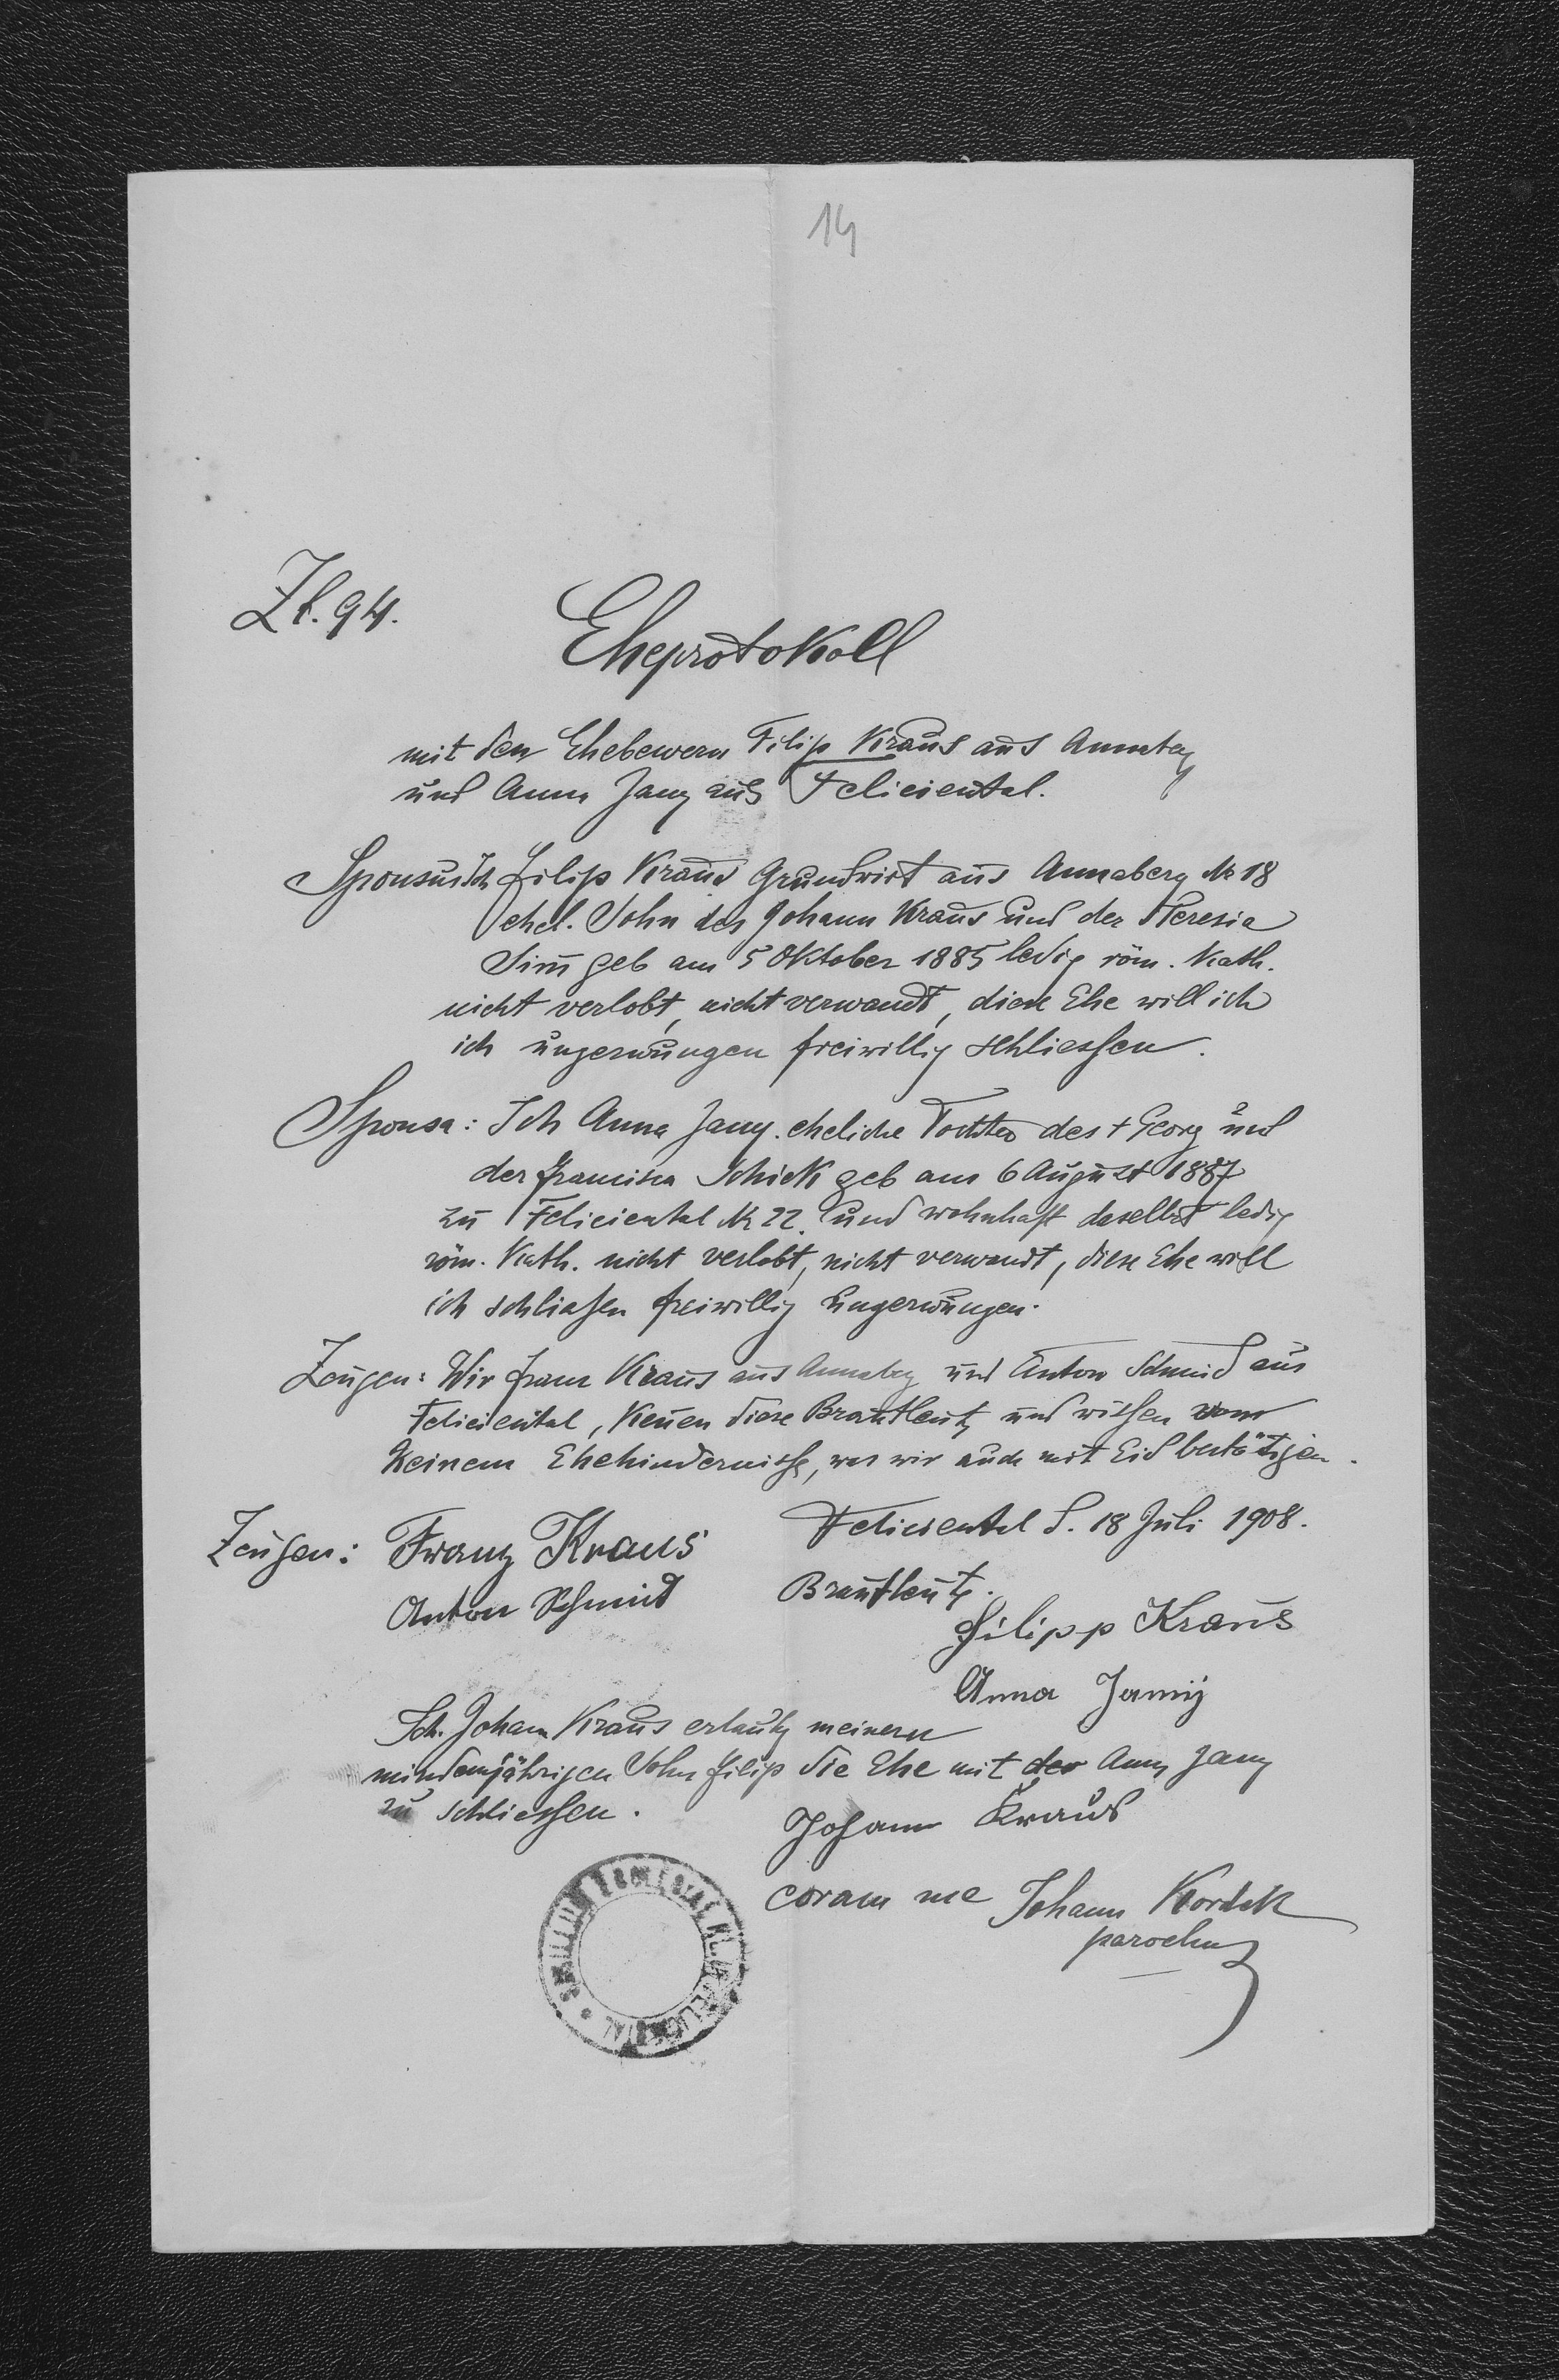 14
Zl. 94.
Eheprotokoll
mit den Ehebewern Filip Kraus aus Annaberg
und Anna Jany aus Felicientel.
Sponsus: Ich Filip Kraus Grundwirt aus Annaberg № 18
ehel. Sohn des Johann Kraus und der Theresia
Sim geb am 5 Oktober 1885 ledig röm. Kath.
nicht verlobt, nicht verwandt, diese Ehe will ich
ich ungezwungen freiwillig schliessen.
Sponsa: Ich Anna Jany. eheliche Tochter des + Georg und
der Francisca Schick geb am 6 August 1887
zu Feliciental № 22. und wohnhaft daselbst ledig
röm. Kath. nicht verlobt, nicht verwandt, diese Ehe will
ich schliessen freiwillig ungezwungen.
Zeugen: Wir Franz Kraus aus Annaberg und Anton Schmid aus
Feliciental, kenen diese Brautleute und wissen vom
keinem Ehehindernisse, was wir auch mit Eid bestätigen.
Feliciental d. 18 Juli 1908.
Zeugen: Franz Kraus
Anton Schmid
Brautleute.
Filipp Kraus
Anna Jany
Ich Johann Kraus erlaube meinem
minderjährigen Sohn Filip die Ehe mit der Anna Jany
zu schliessen.
Johann Kraus
coram me Johann Kordek
parochus